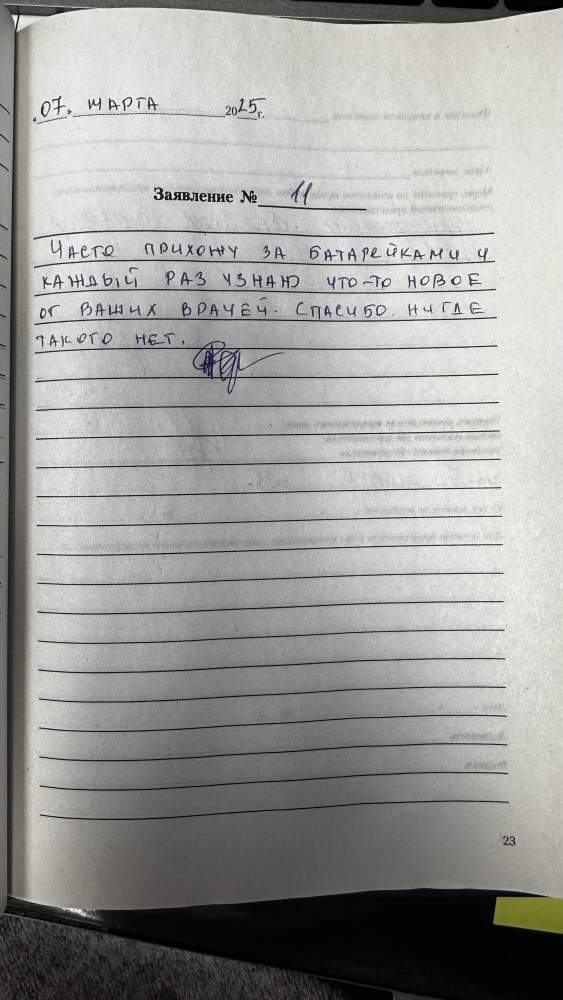 „07" МАРТА 2025г.
Заявление № 11
ЧАСТО ПРИХОЖУ ЗА БАТАРЕЙКАМИ И
КАЖДЫЙ РАЗ УЗНАЮ ЧТО-ТО НОВОЕ
ОТ ВАШИХ ВРАЧЕЙ. СПАСИБО. НИГДЕ
ТАКОГО НЕТ.
23